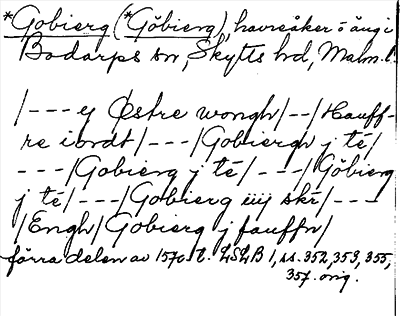 *Gobierg (*Göbierg), havreåker o äng i
Bodarps sn, Skytts hd, Malm. l.
/--- ey Østre wongh/--/Hauff-
re iordt/---/Gobiergh j té/
---/Gobierg j té/---/Göbierg
j té/---/Gobierg iiij skr/---
/Engh/Gobierg j fauffn/
förra delen av 1570-t. LSLB 1, ss. 352, 353, 355,
357. orig.